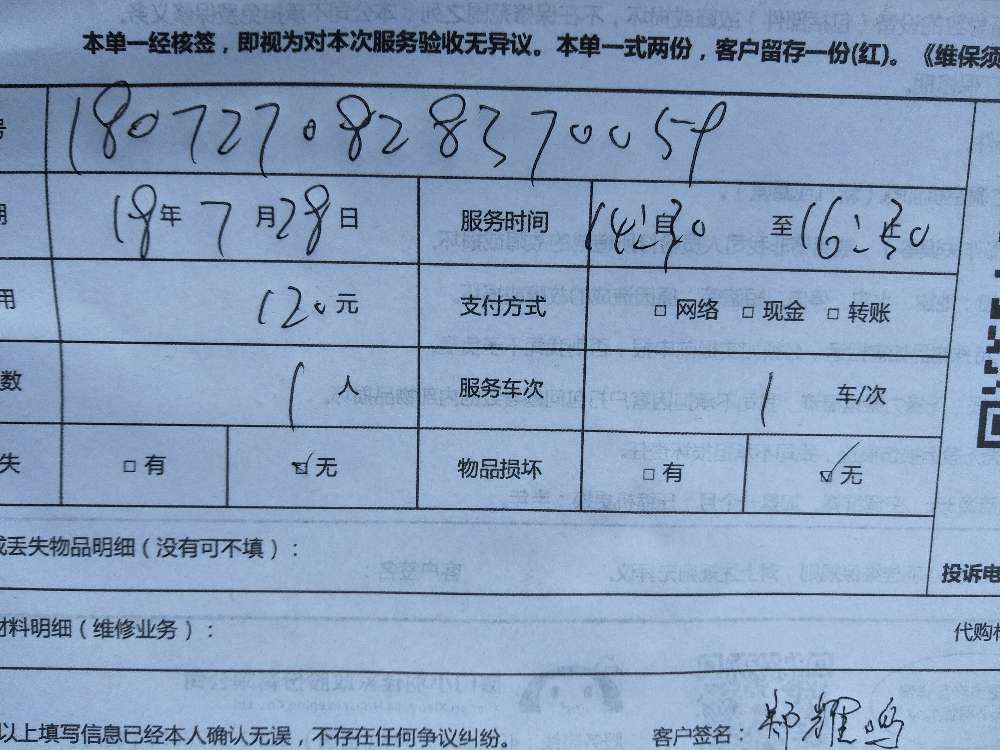 本单一经核签，即视为对本次服务验收无异议。本单一式两份，客户留存一份(红)。《维保须
号 180727082837005
期 18年7月28日 服务时间 14:30 自 至16:50
用 120元 支付方式 □ 网络 □ 现金 □ 转账
数 1 人 服务车次 1 车/次
失 □ 有 ☑ 无 物品损坏 □ 有 ☑ 无
或丢失物品明细（没有可不填）：
投诉电
材料明细（维修业务）： 代购材
以上填写信息已经本人确认无误，不存在任何争议纠纷。 客户签名：耀鸣